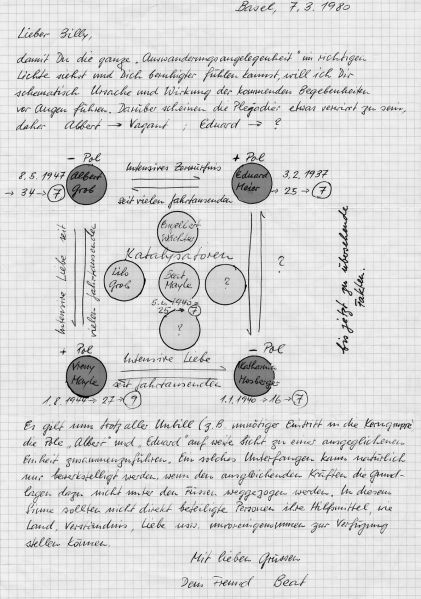 Basel, 7.3.1980
Lieber Billy,
damit Du die ganze "Auswanderungsangelegenheit" im richtigen
Lichte siehst und Dich beruhigter fühlen kannst, will ich Dir
schematisch Ursache und Wirkung der kommenden Begebenheiten
vor Augen führen. Darüber scheinen die Plejadier etwas verwirrt zu sein,
daher Albert → Vagant ; Eduard → ?
- Pol
+ Pol
8.5.1947
→ 34 → 7
Albert
Grob
Intensives Zerwürfnis
seit vielen Jahrtausenden
Eduard
Meier
3.2.1937
→ 25 → 7
Intensive Liebe seit
vielen Jahrtausenden
Engelbert
Wächter
Katalysatoren
Lilo
Grob
Beat
Mayle
?
→ 7
?
?
bis jetzt zu übersehende
Fakten.
+ Pol
- Pol
Vreny
Mayle
Intensive Liebe
seit Jahrtausenden
Katharina
1.8.1944 → 27 → 9
1.1.1940 → 16 → 7
Es gilt nun trotz aller Unbill (z.B. unnötiger Eintritt in die Kerngruppe
die Pole "Albert" und "Eduard" auf weite Sicht zu einer ausgeglichenen
Einheit zusammenzuführen. Ein solches Unterfangen kann natürlich
nur bewerkstelligt werden, wenn den ausgleichenden Kräften die Grund-
lagen dazu nicht unter den Füssen weggezogen werden. In diesem
Sinne sollten nicht direkt beteiligte Personen ihre Hilfsmittel, wie
Land, Verständnis, Liebe usw. unvoreingenommen zur Verfügung
stellen können.
Mit lieben Grüssen
Dein Freund Beat